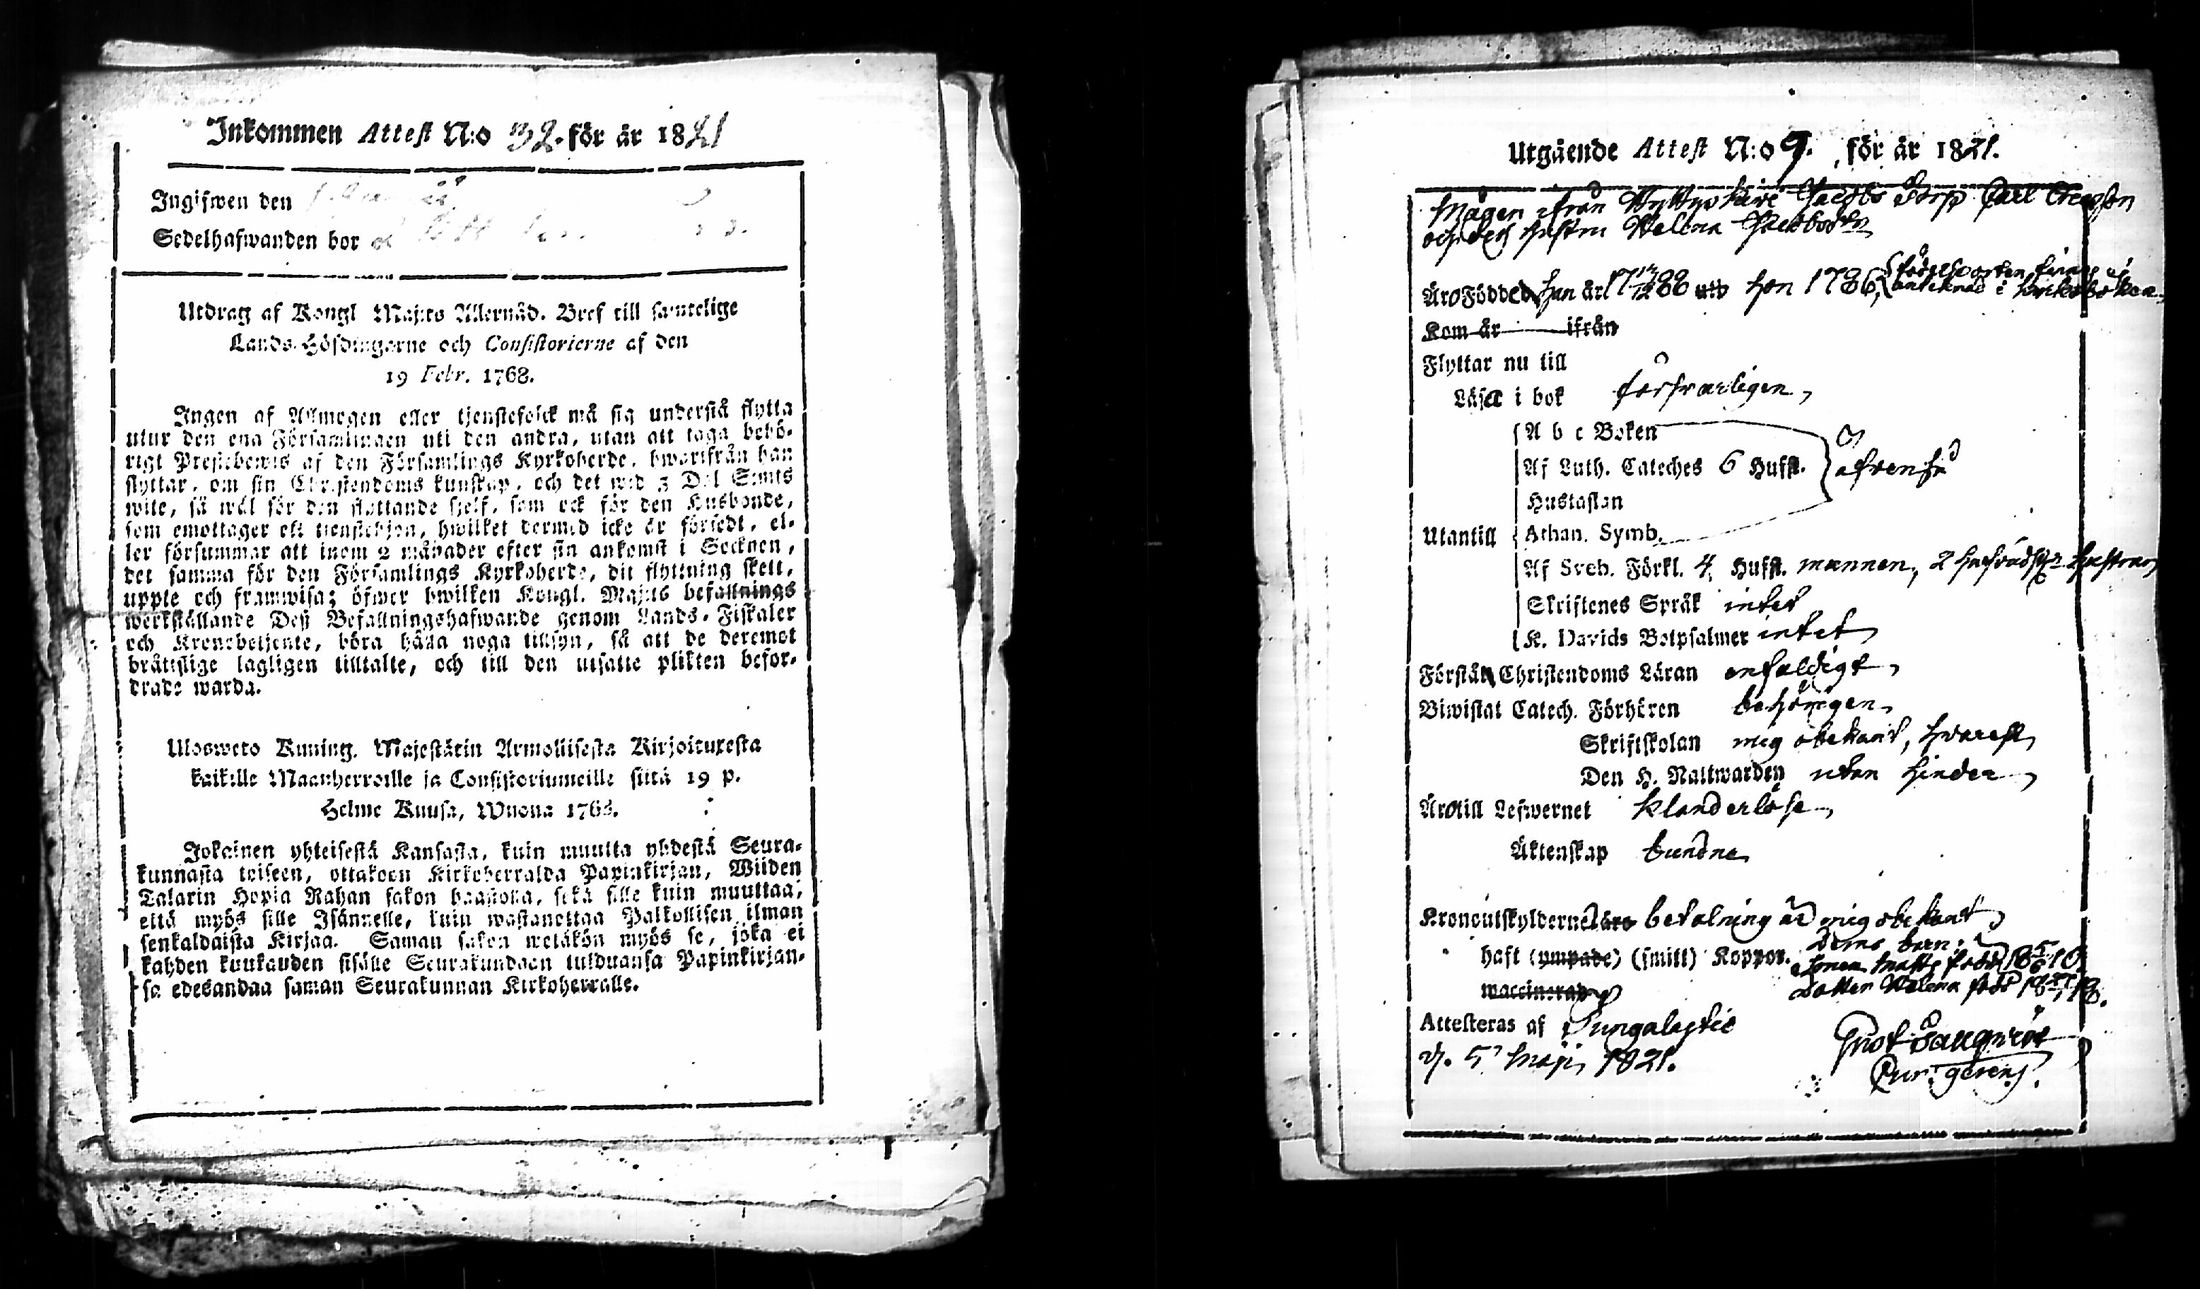 Inkommen Attest N:o 32. för år 1821
Ingifwen den
Sedelhafwanden bor
Utdrag af Kongl Maj:ts Allernåd. Bref till samtelige
Lands-Höfdingarne och Consistorierne af den
19 Febr. 1768.
Ingen af Allmogen eller tjenstefolck må sig understå flytta
utur den ena Församlingen uti den andra, utan att taga behö-
rigt Prestebewis af den Församlings Kyrkoherde, hwarifrån han
flyttar, om sin Christendoms kunskap, och det wid 5 Dal. S:mts
wite, så wäl för den flyttande sjelf, som ock för den Husbonde,
som emottager ett tienstehjon, hwilket dermed icke är försedt, el-
ler försummar att inom 2 månader efter sin ankomst i Socknen,
det samma för den Församlings Kyrkoherde, dit flyttning skett,
uppte och framwisa; öfwer hwilken Kongl. Maj:ts befallnings
werkställande Dess Befallningshafwande genom Lands-Fiskaler
och Kronobetjente, böra hålla noga tillsyn, så att de deremot
bråttslige lagligen tilltalte, och till den utsatte plikten befor-
drade warda.
Ulosweto Kuning. Majestätin Armollisesta Kirjoituxesta
kaikille Maanherroille ja Consistoriumeille siitä 19 p.
Helme Kuusa, Wuona 1768.
Jokainen yhteisestä Kansasta, kuin muutta yhdestä Seura-
kunnasta toiseen, ottakoon Kirkoherralda Papinkirjan, Wiiden
Talarin Hopia Rahan sakon haastolla, sekä sille kuin muuttaa,
että myös sille Isännelle, kuin wastanottaa Palkollisen ilman
senkaldaista Kirjaa. Saman sakon wetäkön myös se, joka ei
kahden kuukauden sisälle Seurakundaan tulduansa Papinkirjan-
sa edesandaa saman Seurakunnan Kirkoherralle.
Utgående Attest N:o 9. för år 1821.
Mågen ifrån Jacobs dorp Carl
och dess hustru Helena Jacobsdr
Äro Födde han år 1788 hon 1786, födelseorten finnes ej
antecknad i kyrkoboken
Kom år ifrån
Flyttar nu till
Läsa i bok försvarligen,
A b c Boken
Af Luth. Cateches 6 Hufst. äfvenså
Hustaflan
Utantill Athan. Symb.
Af Sveb. Förkl. 4 Hufst. mannen, 2 hufvudst. hustrun
Skriftenes Språk intet
K. Davids Botpsalmer intet
Förstå Christendoms Läran enfaldigt,
Biwistat Catech. Förhören behörigen,
Skriftskolan mig obekant,
Den H. Nattwarden utan hinder,
Äro till Lefwernet klanderlöse,
Äktenskap bundne
Kronoutskylderne betalning är mig obekant,
haft (ympade) (smitt) Koppor. Deras barn:
Sonen Matts född 18 10
waccinerad Dotter Helena född 18 18.
Attesteras af Pungalaitio
d. 5 Maji 1821.